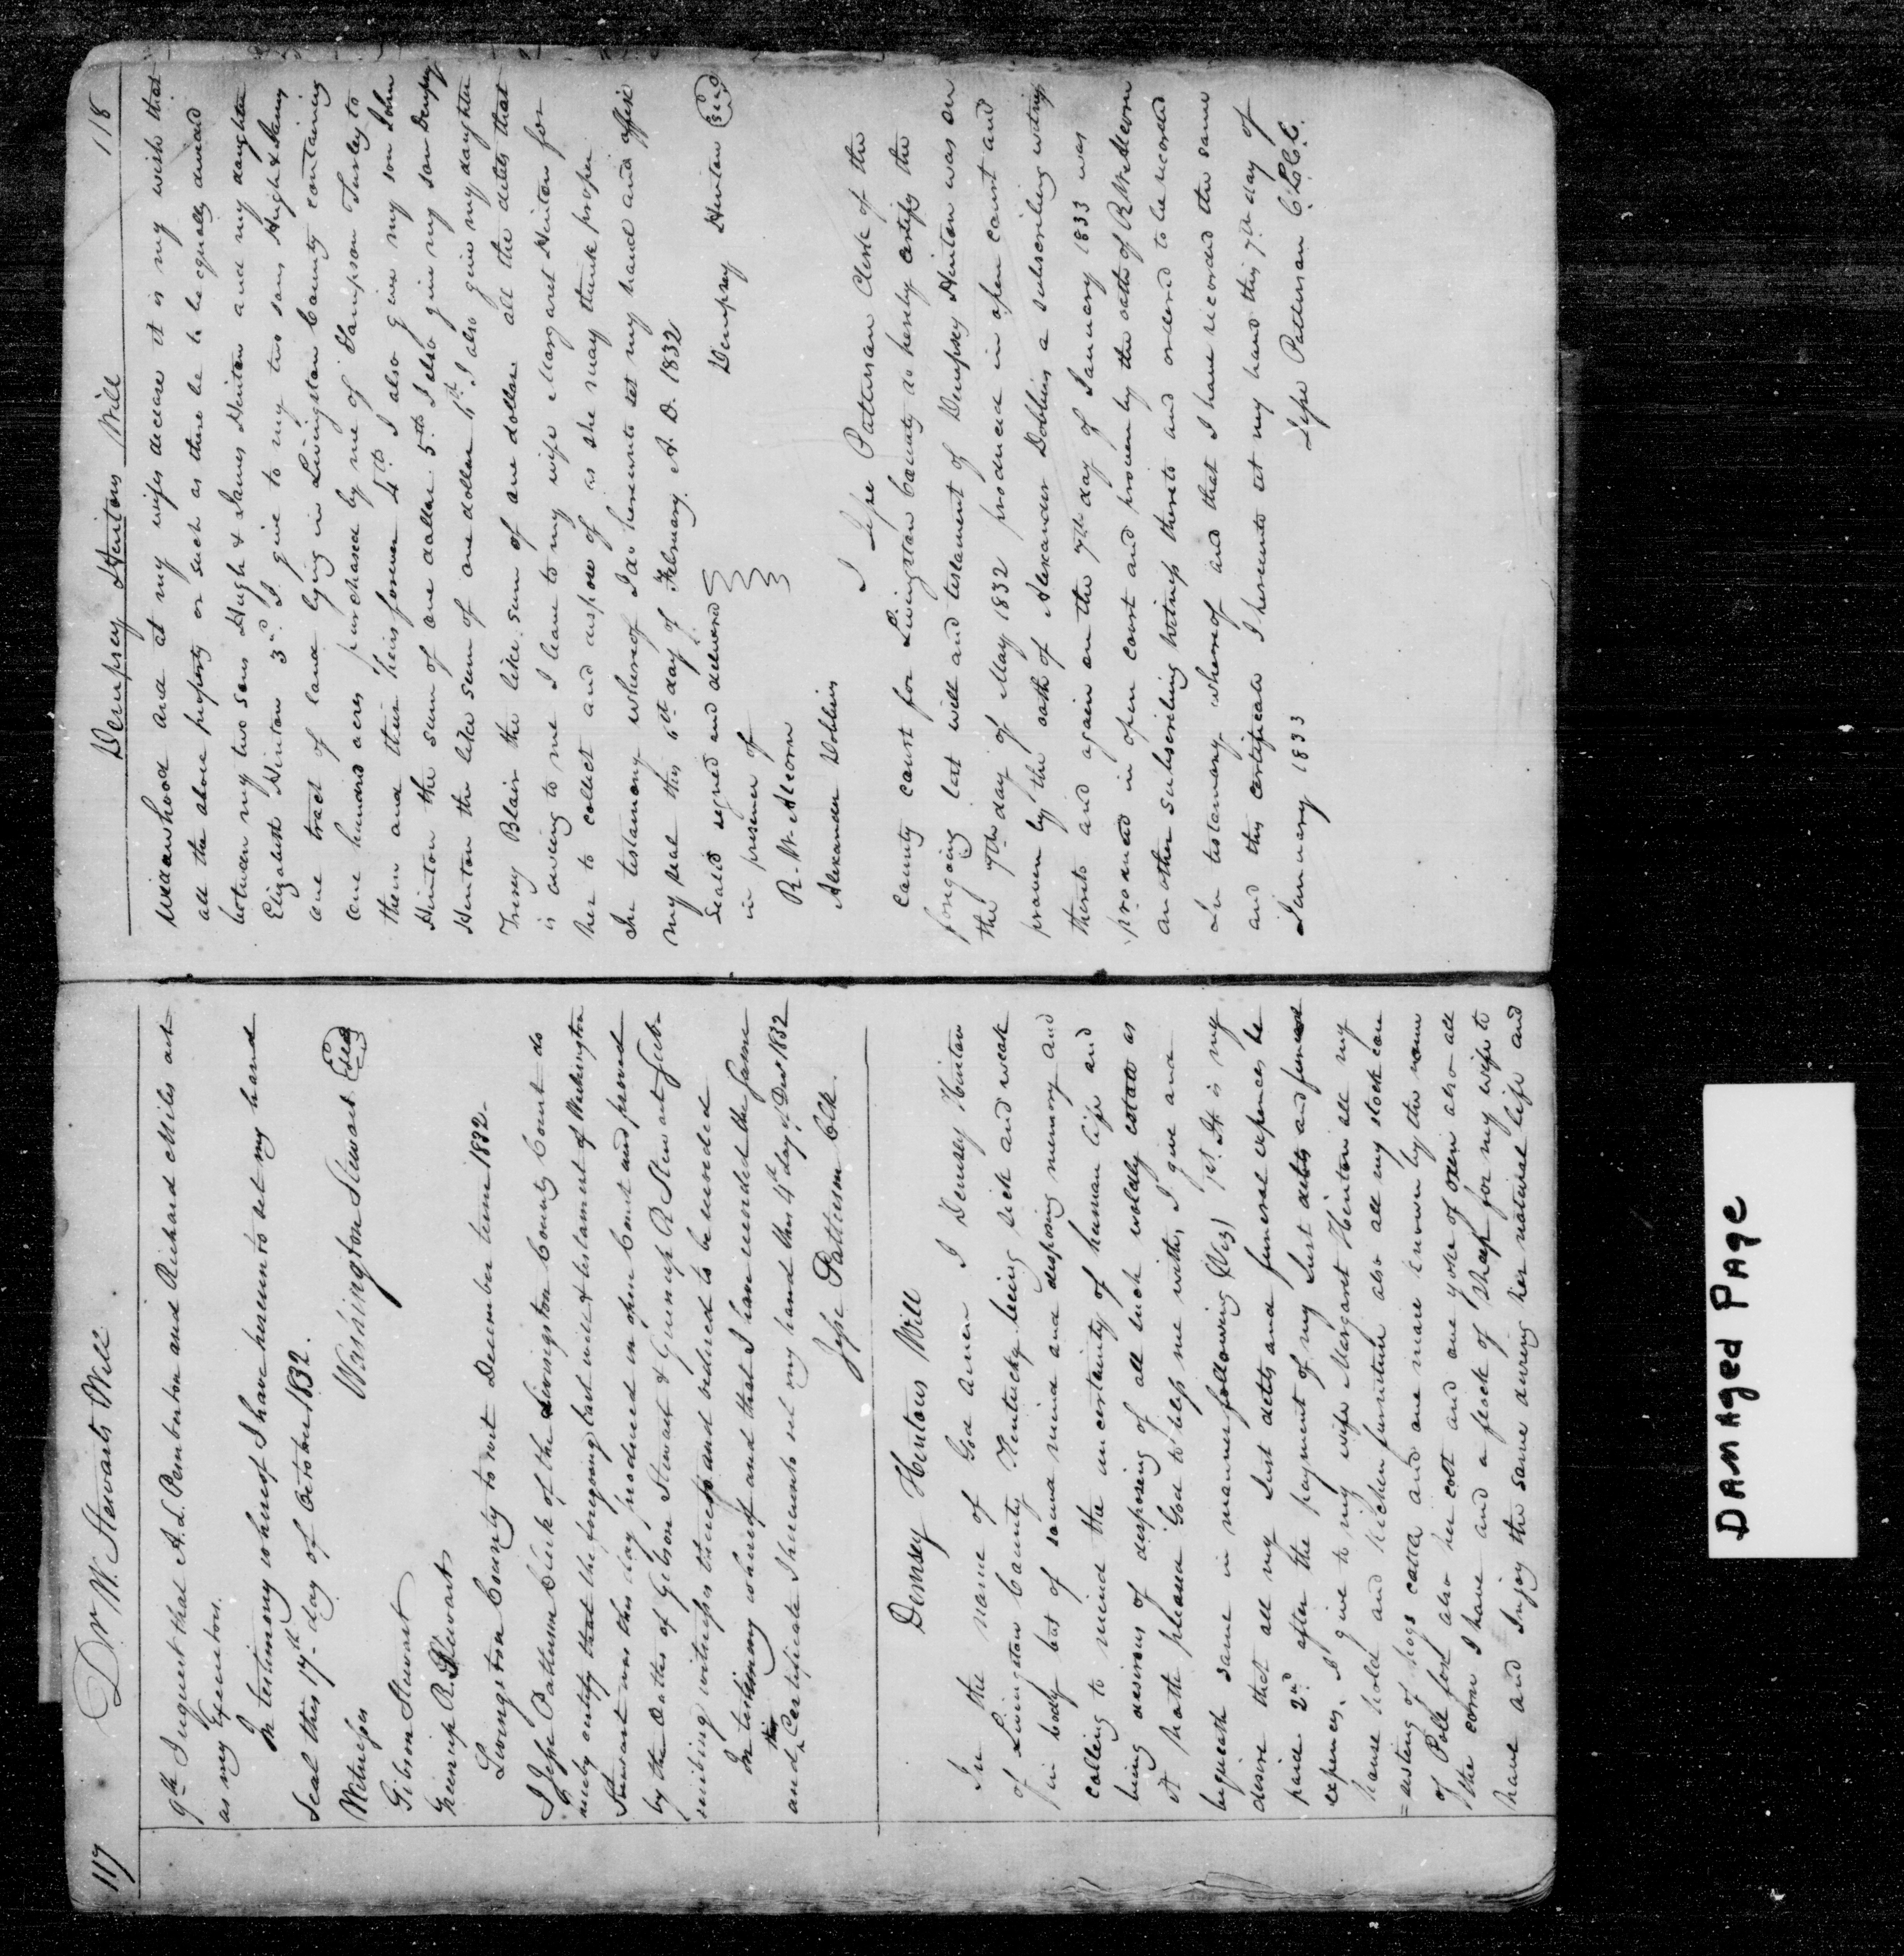 117 Dr. W. Stewarts Will
9th I request that A. L. Pemberton and Richard Miles act
as my Executors.
In testimony whereof I have hereunto set my hand
Seal this 17th day of October 1832.
Washington Stewart Seal
Witnesses
Gibson Stewart
Greenup R Stewart
Livingston County to wit December term 1832
I Jesse Patterson Clerk of the Livingston County Court do
certify that the foregoing last will & testament of Washington
Stewart was this day produced in open Court and proved
by the Oathes of Gibson Stewart & Greenup R Stewart Subs
scribing witnesses thereto and ordered to be recorded
In testimony whereof and that I have recorded the same
and this Certificate I hereunto set my hand this 4th day of Decr 1832
Jesse Patterson Clk
Demsey Hintons Will
In the name of God amen I Demsey Hinton
of Livingston County Kentucky being sick and weak
in body but of sound mind and disposing memory and
calling to mind the uncertainty of human life and
being desirous of disposing of all such worldly estate as
it hath pleased God to help me with, I give and
bequeath same in manner following (Viz) 1st. It is my
desire that all my Just debts and funeral expences be
paid 2nd after the payment of my Just debts and funeral
expences, I give to my wife Margaret Hinton all my
house hold and kitchen furniture also all my stock con
=sisting of hogs cattle and one mare known by the name
of Poll fort also her colt and one yoke of oxen also all
the corn I have and a flock of sheep for my wife to
have and Injoy the same during her natural life and
Dempsey Hintons Will 118
Widdowhood and at my wifes decease it is my wish that
all the above property or such as there be to be equally divided
between my two sons Hugh & James Hinton and my daughter
Elizabeth Hinton 3rd I give to my two sons Hugh & James
one tract of land lying in Livingston County containing
one hundred acres purchased by me of Sampson Turley to
them and their heirs forever 4th I also give my son John
Hinton the sum of one dollar 5th I also give my son Dempsey
Hinton the like sum of one dollar 6th I also give my daughter
Blair the like sum of one dollar all the debts that
is owing to me I leave to my wife Margaret Hinton for
her to collect and dispose of as she may think proper
In testamony whereof I do hereunto set my hand and affix
my seal this 6th day of February A. D. 1832
Seald signed and delivered Dempsey Hinton Seal
in presence of
R. W. Alcorn
Alexander Dobbins
I Jesse Patterson Clerk of the
County court for Livingston County do hereby certify the
forgoing last will and testament of Dempsey Hinton was on
the 7th day of May 1832 produced in open court and
proven by the oath of Alexander Dobbins a subscribing witness
thereto and again on the 7th day of January 1833 was
produced in open court and proven by the oath of R W Alcorn
an other subscribing witness thereto and ordered to be recorded
In testamony whereof and that I have recorded the same
and this certificate I hereunto set my hand this 7th day of
January 1833 Jesse Patterson C.L.C.C.
DAMAged PAge